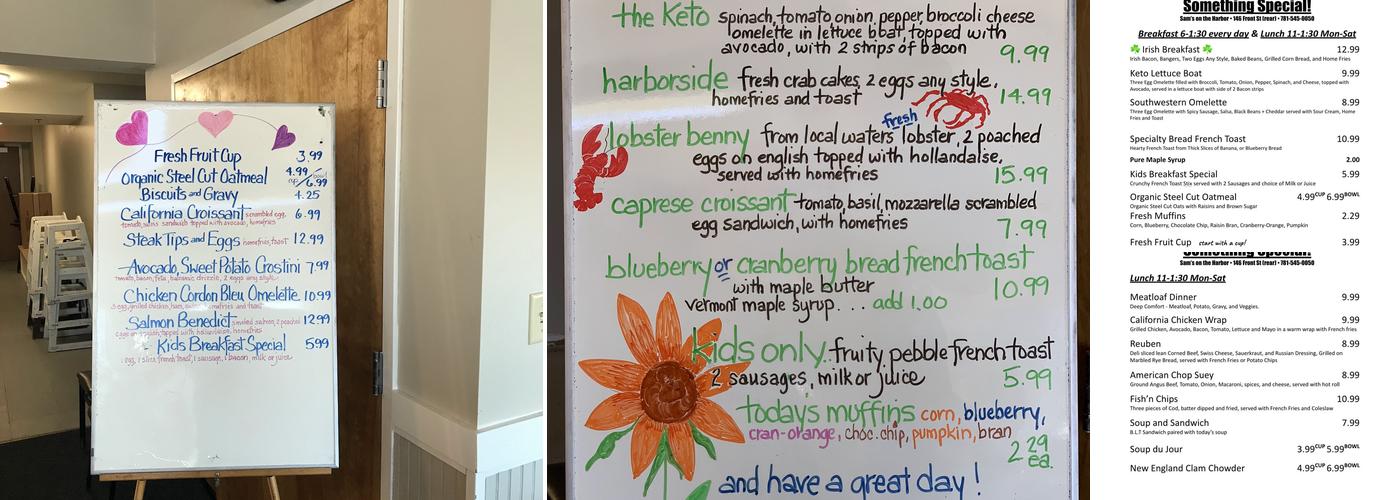 Fresh Fruit Cup 3.99
Organic Steel Cut Oatmeal 4.99 cup/bowl 6.99
Biscuits and Gravy 4.25
California Croissant scrambled egg, 6.99
tomato, swiss sandwich topped with avocado, homefries
Steak Tips and Eggs homefries, toast 12.99
Avocado, Sweet Potato Crostini 7.99
tomato, bacon, feta, balsamic drizzle, 2 eggs any style
Chicken Cordon Bleu Omelette 10.99
3 egg, grilled chicken, ham, homefries and toast
Salmon Benedict smoked salmon, 2 poached 12.99
eggs on english topped with hollandaise, homefries
Kids Breakfast Special 5.99
1 egg, 1 slice french toast, 1 sausage, 1 bacon, milk or juice
the Keto spinach, tomato onion, pepper, broccoli cheese
omelette in lettuce boat, topped with
avocado, with 2 strips of bacon 9.99
harborside fresh crab cakes, 2 eggs any style,
homefries and toast 14.99
fresh
lobster benny from local waters lobster, 2 poached
eggs on english topped with hollandaise,
served with homefries 15.99
caprese croissant tomato, basil, mozzarella scrambled
egg sandwich, with homefries 7.99
blueberry or cranberry bread french toast
with maple butter 10.99
vermont maple syrup... add 1.00
kids only fruity pebble french toast
2 sausages, milk or juice 5.99
todays muffins corn, blueberry,
cran-orange, choc. chip, pumpkin, bran
2 29 ea.
and have a great day!
Something Special!
Sam's on the Harbor • 146 Front St (rear) • 781-545-0050
Breakfast 6-1:30 every day & Lunch 11-1:30 Mon-Sat
Irish Breakfast 12.99
Irish Bacon, Bangers, Two Eggs Any Style, Baked Beans, Grilled Corn Bread, and Home Fries
Keto Lettuce Boat 9.99
Three Egg Omelette filled with Broccoli, Tomato, Onion, Pepper, Spinach, and Cheese, topped with
Avocado, served in a lettuce boat with side of 2 Bacon strips
Southwestern Omelette 8.99
Three Egg Omelette with Spicy Sausage, Salsa, Black Beans + Cheddar served with Sour Cream, Home
Fries and Toast
Specialty Bread French Toast 10.99
Hearty French Toast from Thick Slices of Banana, or Blueberry Bread
Pure Maple Syrup 2.00
Kids Breakfast Special 5.99
Crunchy French Toast Stix served with 2 Sausages and choice of Milk or Juice
Organic Steel Cut Oatmeal 4.99CUP 6.99BOWL
Organic Steel Cut Oats with Raisins and Brown Sugar
Fresh Muffins 2.29
Corn, Blueberry, Chocolate Chip, Raisin Bran, Cranberry-Orange, Pumpkin
Fresh Fruit Cup start with a cup! 3.99
Something Special!
Sam's on the Harbor • 146 Front St (rear) • 781-545-0050
Lunch 11-1:30 Mon-Sat
Meatloaf Dinner 9.99
Deep Comfort - Meatloaf, Potato, Gravy, and Veggies.
California Chicken Wrap 9.99
Grilled Chicken, Avocado, Bacon, Tomato, Lettuce and Mayo in a warm wrap with French fries
Reuben 8.99
Deli sliced lean Corned Beef, Swiss Cheese, Sauerkraut, and Russian Dressing, Grilled on
Marbled Rye Bread, served with French Fries or Potato Chips
American Chop Suey 8.99
Ground Angus Beef, Tomato, Onion, Macaroni, spices, and cheese, served with hot roll
Fish'n Chips 10.99
Three pieces of Cod, batter dipped and fried, served with French Fries and Coleslaw
Soup and Sandwich 7.99
B.L.T Sandwich paired with today's soup
Soup du Jour 3.99CUP 5.99BOWL
New England Clam Chowder 4.99CUP 6.99BOWL